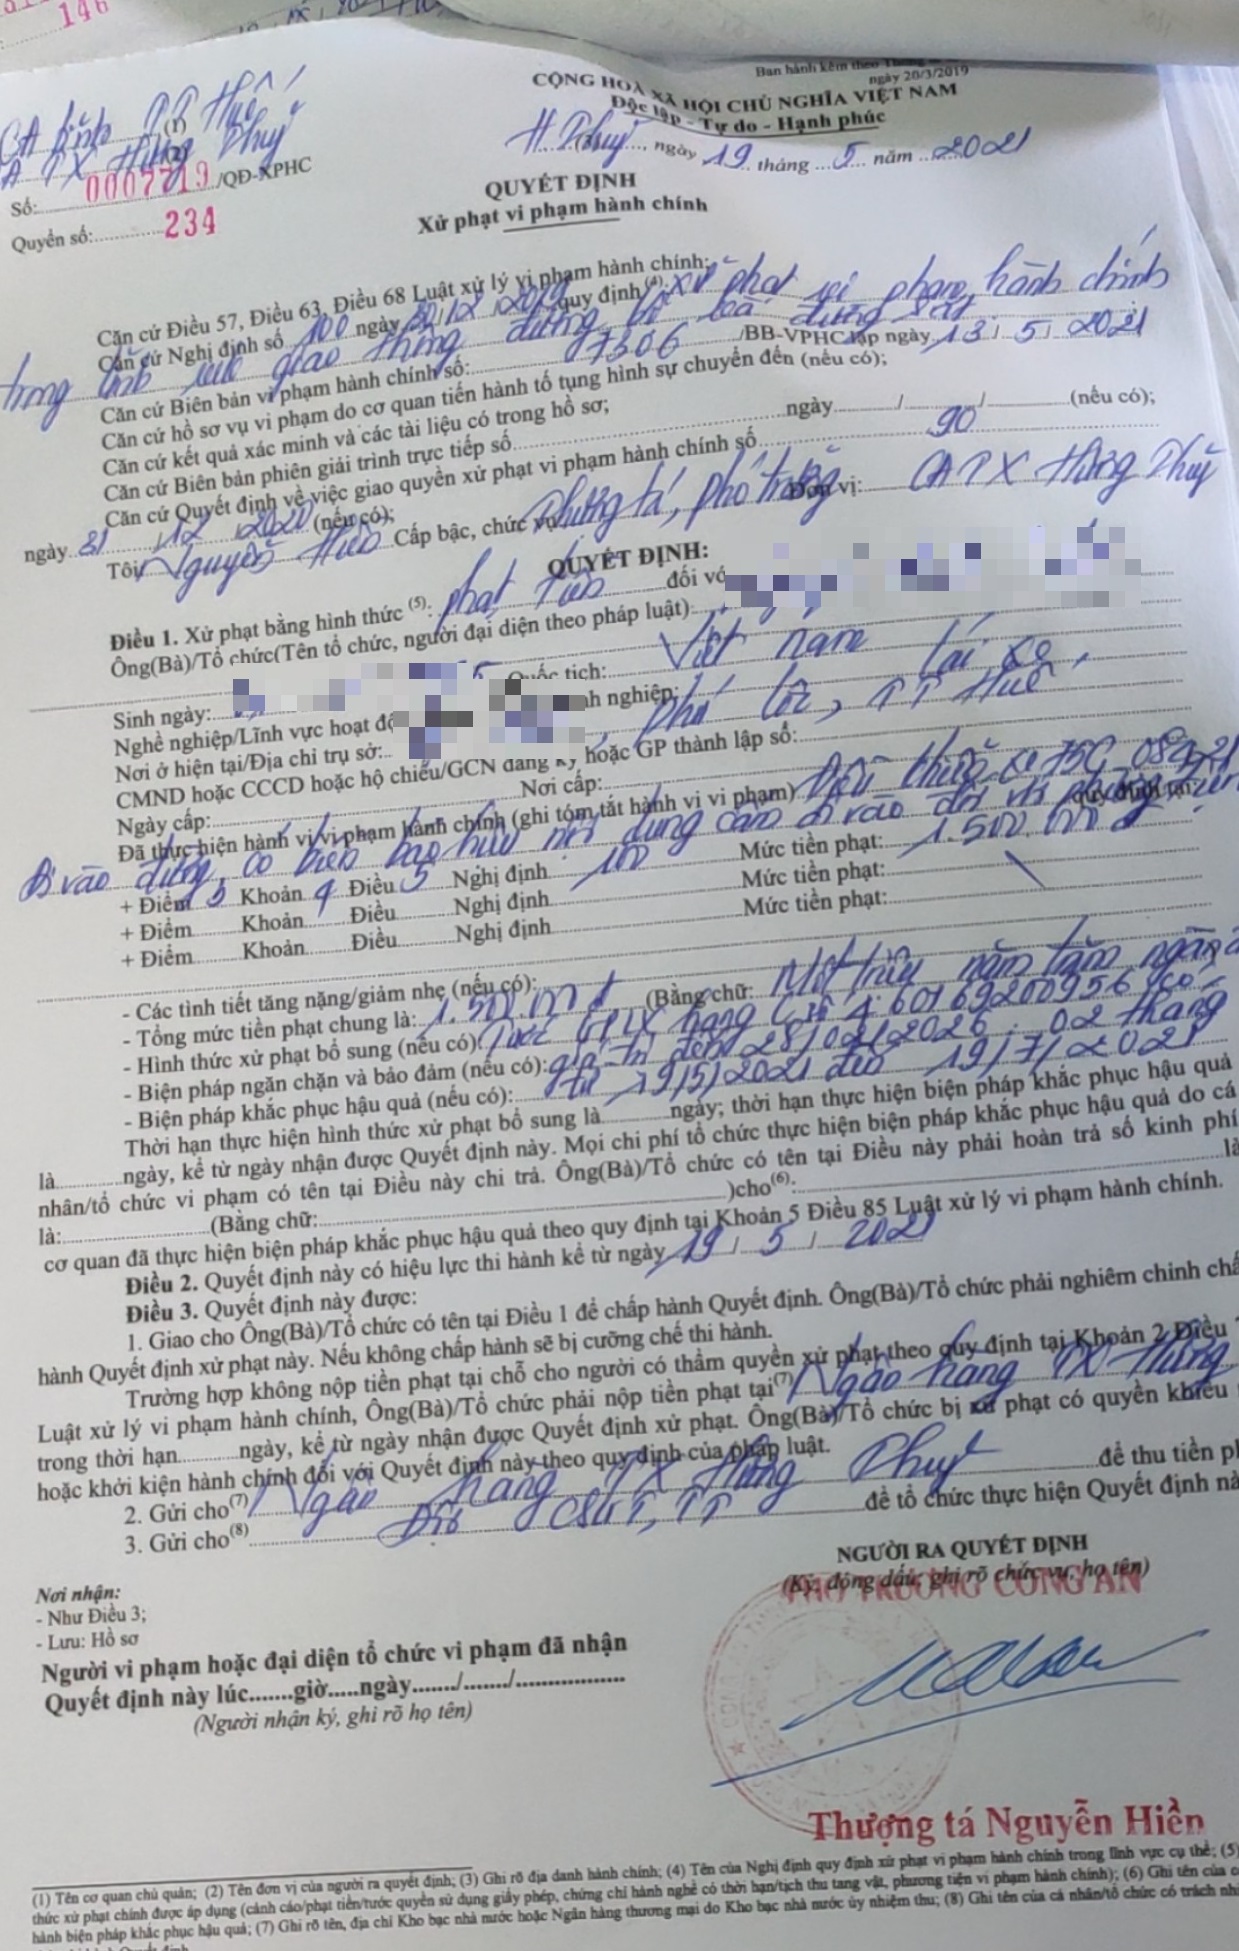 146
Ban hành kèm theo Thông
ngày 20/3/2019
CA tỉnh TT Huế
CỘNG HOÀ XÃ HỘI CHỦ NGHĨA VIỆT NAM
(1)
Độc lập - Tự do - Hạnh phúc
CA TX Hương Thuỷ
(2)
H. Thuỷ, ngày 19 tháng 5 năm 2021
Số: 0007719/QĐ-XPHC
Quyển số: 234
QUYẾT ĐỊNH
Xử phạt vi phạm hành chính
Căn cứ Điều 57, Điều 63, Điều 68 Luật xử lý vi phạm hành chính;
Căn cứ Nghị định số 100 ngày 30/12/2019 quy định (4) xử phạt vi phạm hành chính
trong lĩnh vực giao thông đường bộ và đường sắt
Căn cứ Biên bản vi phạm hành chính số: 07306/BB-VPHC lập ngày 13/5/2021
Căn cứ hồ sơ vụ vi phạm do cơ quan tiến hành tố tụng hình sự chuyển đến (nếu có);
Căn cứ kết quả xác minh và các tài liệu có trong hồ sơ;
Căn cứ Biên bản phiên giải trình trực tiếp số ngày / / (nếu có);
Căn cứ Quyết định về việc giao quyền xử phạt vi phạm hành chính số 90
ngày 31/12/2020 (nếu có);
Tôi: Nguyễn Hiền Cấp bậc, chức vụ Thượng tá, phó trưởng Đơn vị: CATX Hương Thuỷ
QUYẾT ĐỊNH:
Điều 1. Xử phạt bằng hình thức (5): phạt tiền đối vớ
Ông(Bà)/Tổ chức(Tên tổ chức, người đại diện theo pháp luật):
Sinh ngày: Quốc tịch: Việt Nam
Nghề nghiệp/Lĩnh vực hoạt độ nh nghiệp: lái xe
Nơi ở hiện tại/Địa chỉ trụ sở: , Phú Lộc, TT Huế
CMND hoặc CCCD hoặc hộ chiếu/GCN đăng ký hoặc GP thành lập số:
Ngày cấp: Nơi cấp:
Đã thực hiện hành vi vi phạm hành chính (ghi tóm tắt hành vi vi phạm) Điều khiển xe 75C 08921 quy định tại:
Đi vào đường có biển báo hiệu nội dung cấm đi vào đối với phương tiện
+ Điểm Khoản 4 Điều 5 Nghị định 100 Mức tiền phạt: 1.500.000đ
+ Điểm Khoản Điều Nghị định Mức tiền phạt:
+ Điểm Khoản Điều Nghị định Mức tiền phạt:
- Các tình tiết tăng nặng/giảm nhẹ (nếu có):
- Tổng mức tiền phạt chung là: 1.500.000đ (Bằng chữ: Một triệu năm trăm ngàn đ
- Hình thức xử phạt bổ sung (nếu có): Tước GPLX hạng C số 460169200956 có
- Biện pháp ngăn chặn và bảo đảm (nếu có): giá trị đến 28/02/2026. 02 tháng
- Biện pháp khắc phục hậu quả (nếu có): từ 19/5/2021 đến 19/7/2021
Thời hạn thực hiện hình thức xử phạt bổ sung là ngày; thời hạn thực hiện biện pháp khắc phục hậu quả
là ngày, kể từ ngày nhận được Quyết định này. Mọi chi phí tổ chức thực hiện biện pháp khắc phục hậu quả do cá
nhân/tổ chức vi phạm có tên tại Điều này chi trả. Ông(Bà)/Tổ chức có tên tại Điều này phải hoàn trả số kinh phí
là: (Bằng chữ: )cho(6): là
cơ quan đã thực hiện biện pháp khắc phục hậu quả theo quy định tại Khoản 5 Điều 85 Luật xử lý vi phạm hành chính.
Điều 2. Quyết định này có hiệu lực thi hành kể từ ngày 19/5/2021
Điều 3. Quyết định này được:
1. Giao cho Ông(Bà)/Tổ chức có tên tại Điều 1 để chấp hành Quyết định. Ông(Bà)/Tổ chức phải nghiêm chỉnh chấ
hành Quyết định xử phạt này. Nếu không chấp hành sẽ bị cưỡng chế thi hành.
Trường hợp không nộp tiền phạt tại chỗ cho người có thẩm quyền xử phạt theo quy định tại Khoản 2 Điều
Luật xử lý vi phạm hành chính, Ông(Bà)/Tổ chức phải nộp tiền phạt tại(7) Ngân hàng TX Hương
trong thời hạn ngày, kể từ ngày nhận được Quyết định xử phạt. Ông(Bà)/Tổ chức bị xử phạt có quyền khiếu
hoặc khởi kiện hành chính đối với Quyết định này theo quy định của pháp luật.
2. Gửi cho(7) Ngân hàng TX Hương Thuỷ để thu tiền ph
3. Gửi cho(8) Đội CSGT, TT để tổ chức thực hiện Quyết định nà
NGƯỜI RA QUYẾT ĐỊNH
(Ký, đóng dấu, ghi rõ chức vụ, họ tên)
PHÓ TRƯỞNG CÔNG AN
Nơi nhận:
- Như Điều 3;
- Lưu: Hồ sơ
Người vi phạm hoặc đại diện tổ chức vi phạm đã nhận
Quyết định này lúc.......giờ.....ngày......./......./.................
(Người nhận ký, ghi rõ họ tên)
Thượng tá Nguyễn Hiền
(1) Tên cơ quan chủ quản; (2) Tên đơn vị của người ra quyết định; (3) Ghi rõ địa danh hành chính; (4) Tên của Nghị định quy định xử phạt vi phạm hành chính trong lĩnh vực cụ thể; (5)
thức xử phạt chính được áp dụng (cảnh cáo/phạt tiền/tước quyền sử dụng giấy phép, chứng chỉ hành nghề có thời hạn/tịch thu tang vật, phương tiện vi phạm hành chính); (6) Ghi tên của c
hành biện pháp khắc phục hậu quả; (7) Ghi rõ tên, địa chỉ Kho bạc nhà nước hoặc Ngân hàng thương mại do Kho bạc nhà nước ủy nhiệm thu; (8) Ghi tên của cá nhân/tổ chức có trách nhi